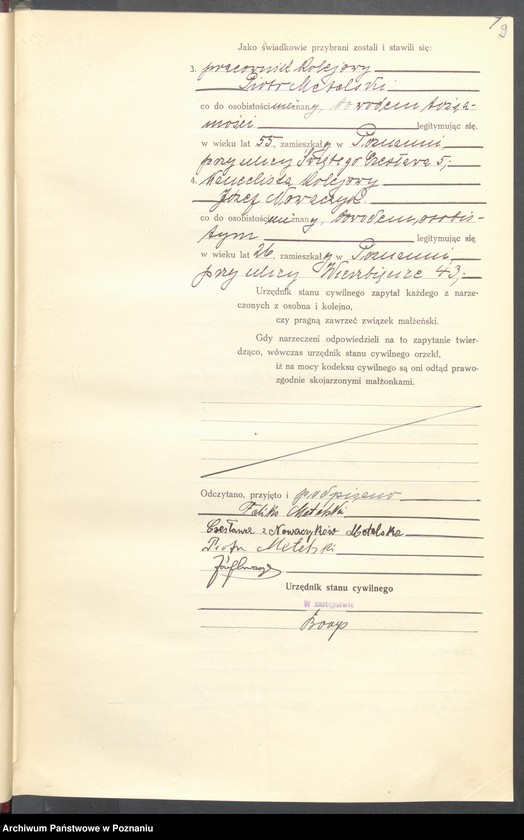 9
Jako świadkowie przybrani zostali i stawili się:
3. pracownik kolejowy
Piotr Metelski
co do osobistości nieznany, dowodem tożsa-
mości legitymując się,
w wieku lat 55, zamieszkały w Poznaniu,
przy ulicy Świętego Czesława 5,
4. kancelista kolejowy
Józef Nowaczyk
co do osobistości nieznany, dowodem osobis-
tym legitymując się,
w wieku lat 26, zamieszkały w Poznaniu,
przy ulicy Wierzbięcice 43,
Urzędnik stanu cywilnego zapytał każdego z narze-
czonych z osobna i kolejno,
czy pragną zawrzeć związek małżeński.
Gdy narzeczeni odpowiedzieli na to zapytanie twier-
dząco, wówczas urzędnik stanu cywilnego orzekł,
iż na mocy kodeksu cywilnego są oni odtąd prawo-
zgodnie skojarzonymi małżonkami.
Odczytano, przyjęto i podpisano
Feliks Metelski
Czesława z Nowaczyków Metelska
Piotr Metelski
Urzędnik stanu cywilnego
W zastępstwie
Archiwum Państwowe w Poznaniu